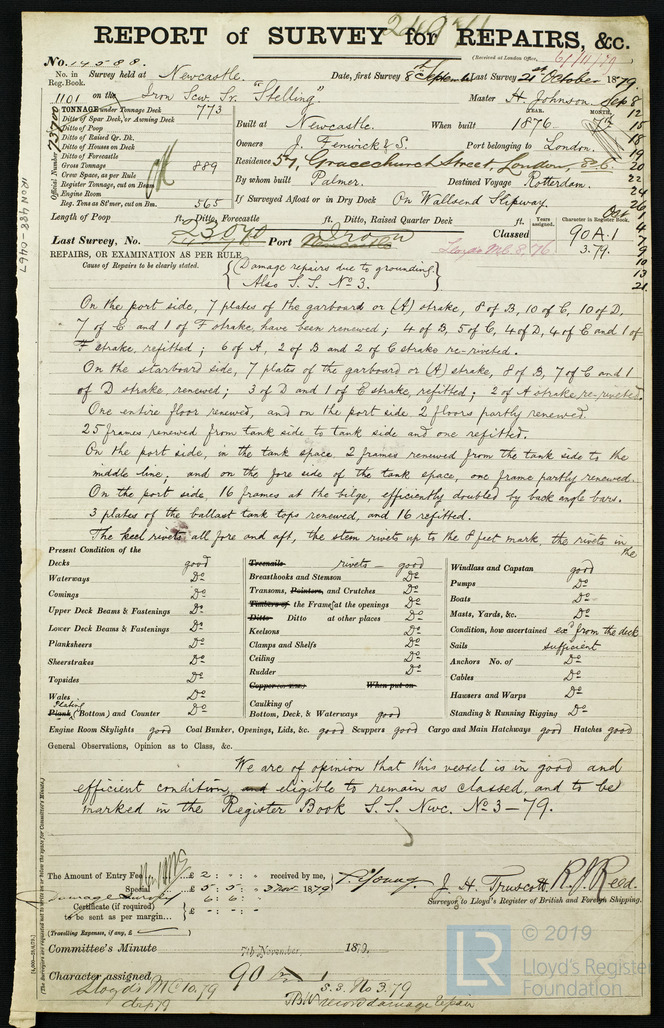 REPORT of SURVEY for REPAIRS, &c.
(Received at London Office,
No. 14588.
No. in Reg. Book. Survey held at Newcastle. Date, first Survey 8th September Last Survey 21st October 1879.
1101 on the Iron Scw. Sr. "Stelling." Master H. Johnson Sep 8
TONNAGE under Tonnage Deck 773
Ditto of Spar Deck, or Awning Deck
Ditto of Poop
Ditto of Raised Qr. Dk.
Ditto of Houses on Deck
Ditto of Forecastle
Gross Tonnage 889
Crew Space, as per Rule
Register Tonnage, cut on Beam
Engine Room
Reg. Tons as St'mer, cut on Bm. 565
Official Number
Built at Newcastle. When built YEAR. 1876 MONTH. 7th
Owners J. Fenwick & S. Port belonging to London.
Residence 57, Gracechurch Street, London, E.C.
By whom built Palmer. Destined Voyage Rotterdam.
If Surveyed Afloat or in Dry Dock On Wallsend Slipway.
12
15
18
19
20
22
24
26
Oct 1
4
7
9
10
13
21
Length of Poop ft. Ditto, Forecastle ft. Ditto, Raised Quarter Deck ft.
Years assigned. Character in Register Book.
Last Survey, No. 23,040 Port Iron Classed 90 A.1
Lloyds M.C. 8.76 3.79.
REPAIRS, OR EXAMINATION AS PER RULE
Cause of Repairs to be clearly stated.
{Damage repairs due to grounding.}
Also S. S. No 3.
On the port side, 7 plates of the garboard or (A) strake, 8 of B, 10 of C, 10 of D.
7 of E and 1 of F strake, have been renewed; 4 of B, 5 of C, 4 of D, 4 of E and 1 of
F strake, refitted; 6 of A, 2 of B and 2 of C strake re-riveted.
On the starboard side, 7 plates of the garboard or (A) strake, 8 of B, 7 of C and 1
of D strake, renewed; 3 of D and 1 of E strake, refitted; 2 of A strake, re-riveted
One entire floor renewed, and on the port side 2 floors partly renewed.
25 frames renewed from tank side to tank side and one refitted.
On the port side, in the tank space, 2 frames renewed from the tank side to the
middle line; and on the fore side of the tank space, one frame partly renewed.
On the port side, 16 frames at the bilge, efficiently doubled by back angle bars.
3 plates of the ballast tank tops renewed, and 16 refitted.
The keel rivets all fore and aft, the stem rivets up to the 8 feet mark, the rivets in the
Present Condition of the
Decks good
Waterways Do
Comings Do
Upper Deck Beams & Fastenings Do
Lower Deck Beams & Fastenings Do
Planksheers Do
Sheerstrakes Do
Topsides Do
Wales Do
Plank Plating (Bottom) and Counter Do
Treenails rivets — good
Breasthooks and Stemson Do
Transoms, Pointers, and Crutches Do
Timbers of the Frame at the openings Do
Ditto Ditto at other places Do
Keelsons Do
Clamps and Shelfs Do
Ceiling Do
Rudder Do
Copper When put on
Caulking of Bottom, Deck, & Waterways good
Windlass and Capstan good
Pumps Do
Boats Do
Masts, Yards, &c. Do
Condition, how ascertained exd from the deck
Sails sufficient
Anchors No. of Do
Cables Do
Hawsers and Warps Do
Standing & Running Rigging Do
Engine Room Skylights good Coal Bunker, Openings, Lids, &c. good Scuppers good Cargo and Main Hatchways good Hatches good
General Observations, Opinion as to Class, &c.
We are of opinion that this vessel is in good and
efficient condition, and eligible to remain as classed, and to be
marked in the Register Book S. S. Nwc. No 3 – 79.
The Amount of Entry Fee £ 2 : - : - received by me,
Special £ 5 : 5 : - 3 Nov 1879
Damage Survey 6 : 6 : -
Certificate (if required) £ - : - : -
to be sent as per margin...
(Travelling Expenses, if any, £
T. Young. J. H. Truscott. R. J. Reed.
Surveyor to Lloyd's Register of British and Foreign Shipping.
Committee's Minute 7th November 1879.
Character assigned 90 A 1
Lloyds M C 10.79 S.S. No 3.79
record damage repair
© 2019
LR
Lloyd's Register
Foundation
IRON 488-0467